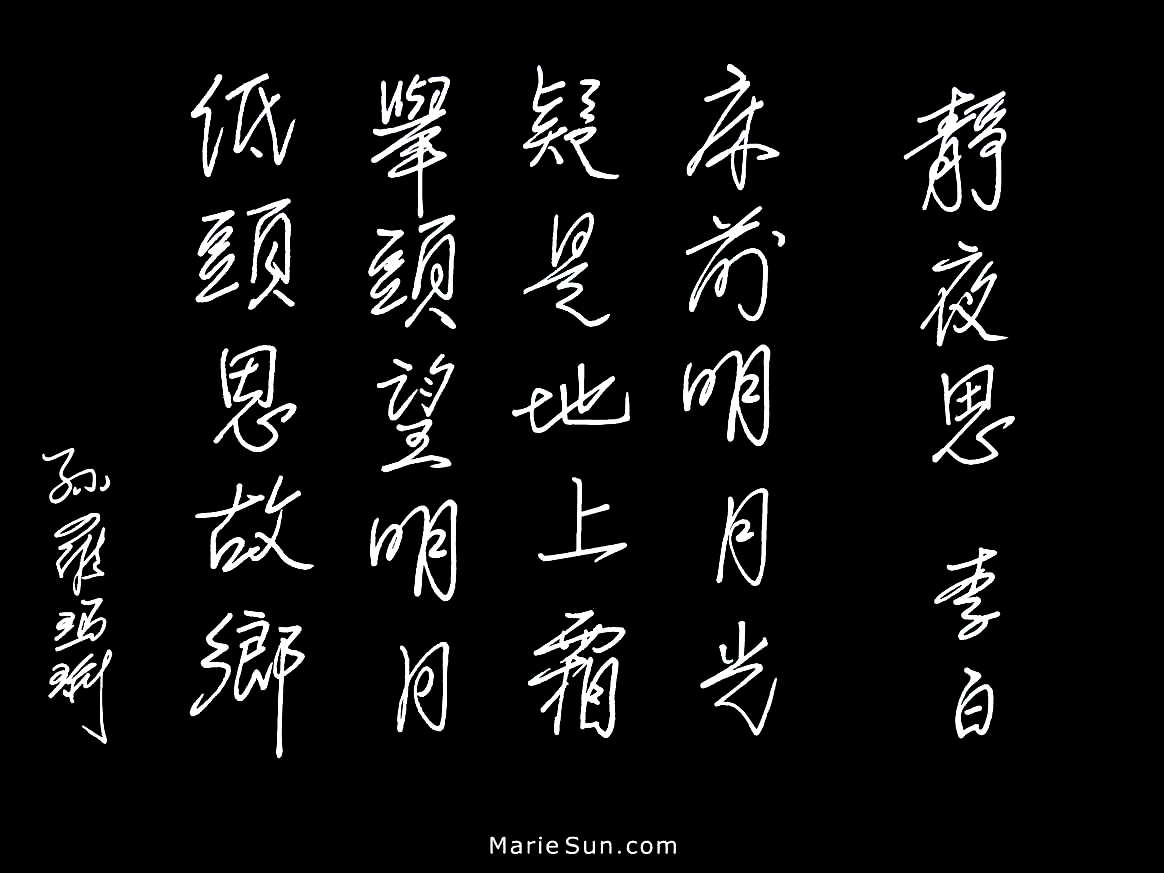 靜夜思 李白
床前明月光
疑是地上霜
舉頭望明月
低頭思故鄉
孫羅瑪琍
MarieSun.com